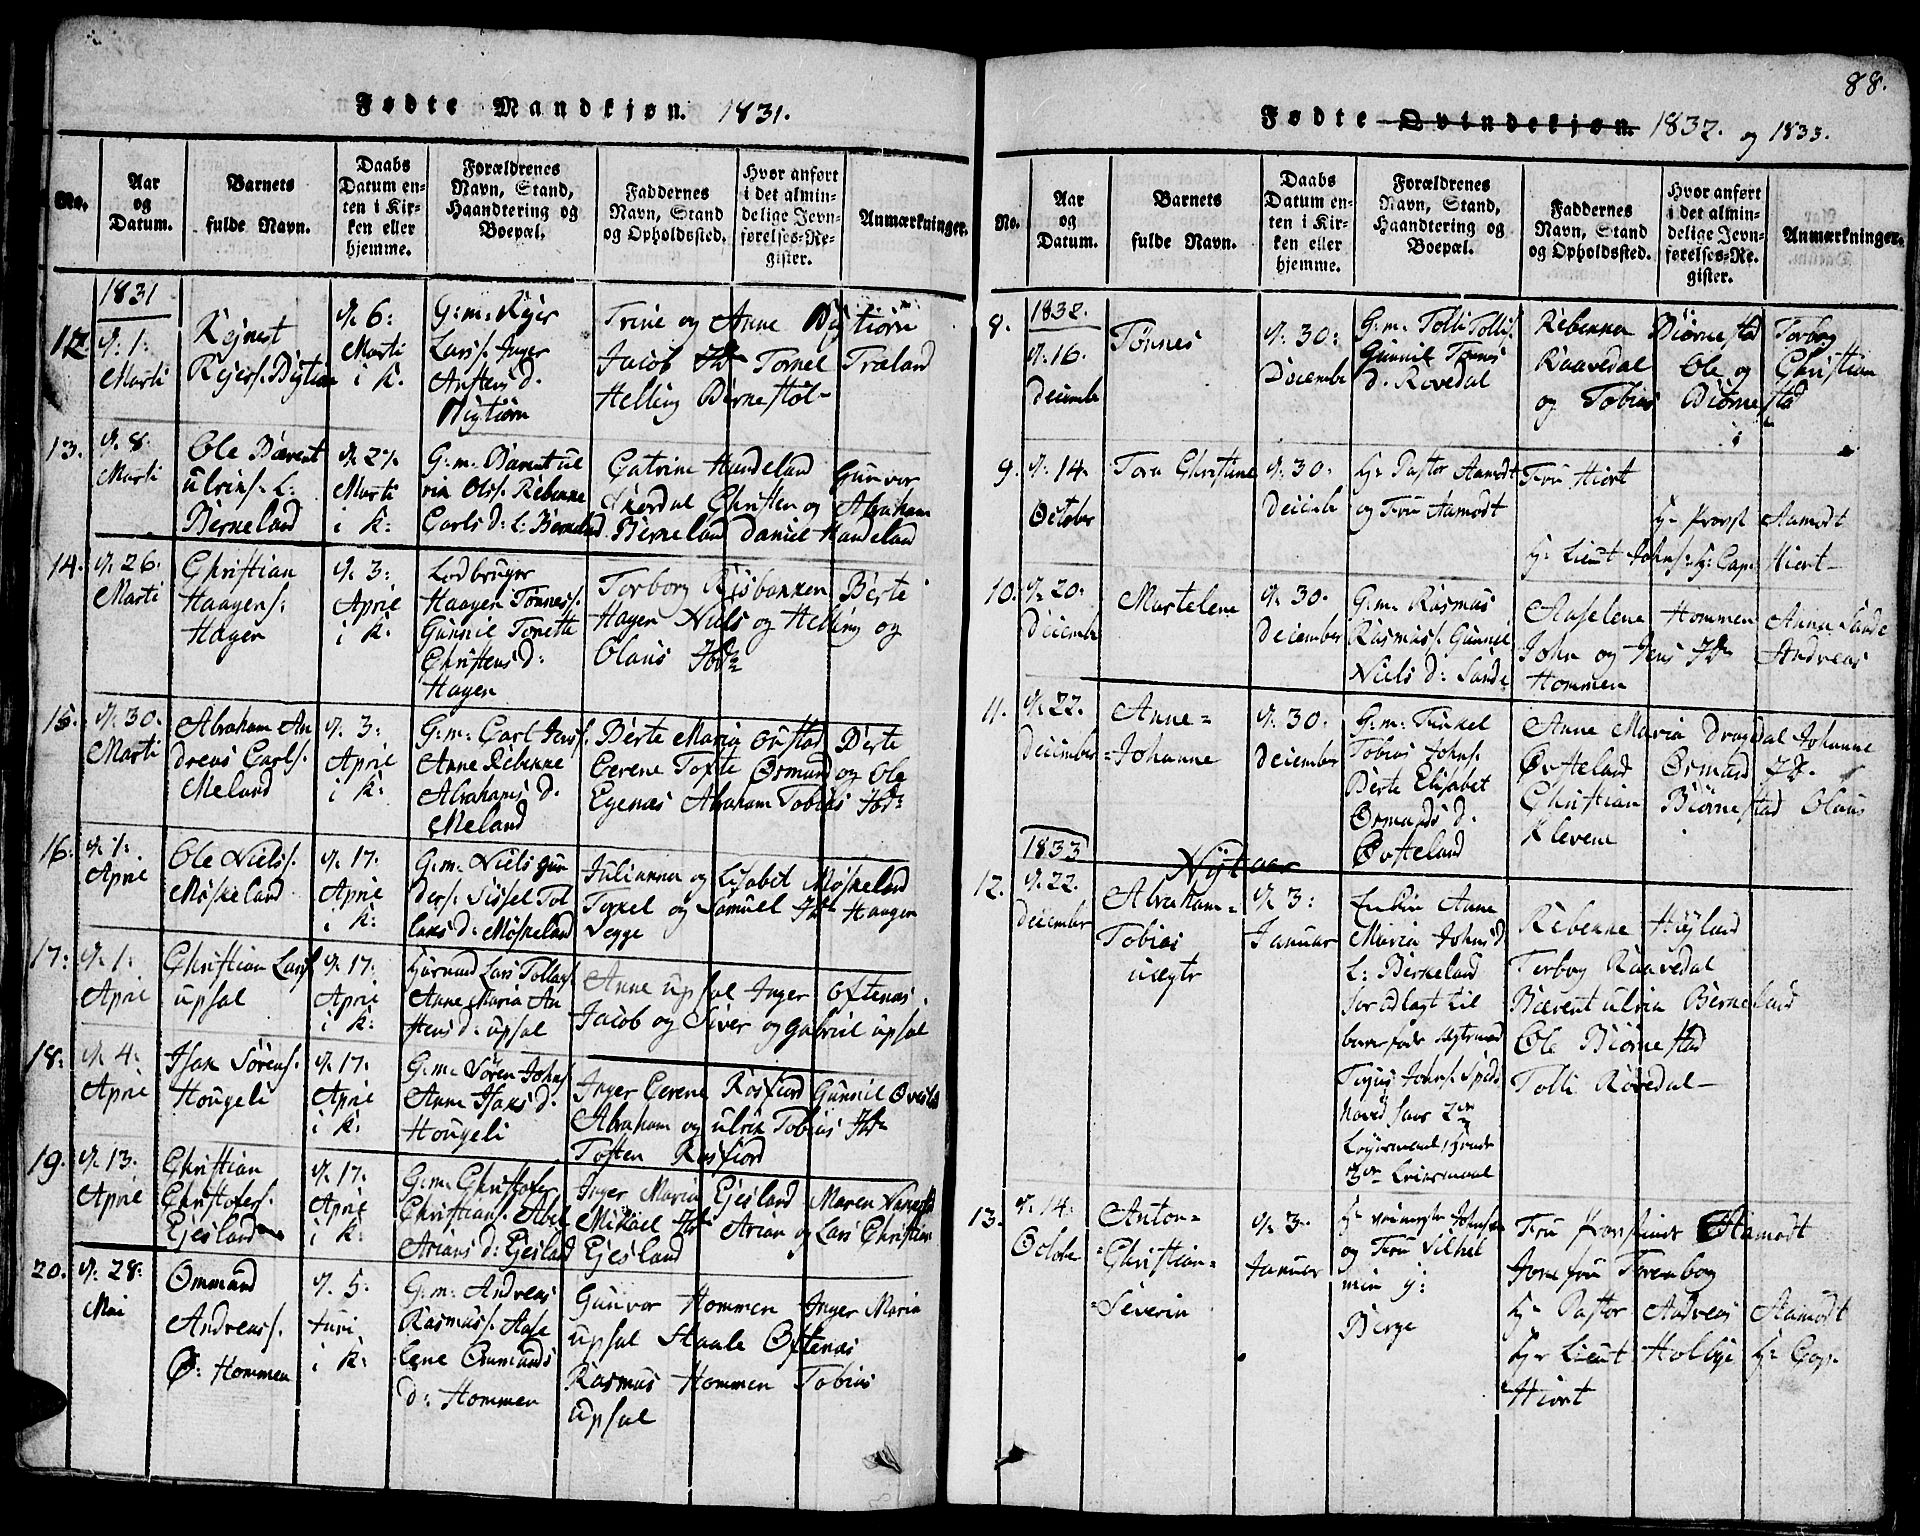 Fødte Mandkjøn. 1831.
No.
Aar og Datum.
Barnets fulde Navn.
Daabs Datum enten i Kirken eller hjemme.
Forældrenes Navn, Stand, Haandtering og Boepæl.
Faddernes Navn, Stand og Opholdssted.
Hvor anført i det almindelige Jevnførelses-Register.
Anmærkninger.
1831
12
d. 1:
Marti
Rejnert
Rejers. Bigtiøn
d. 6:
Marti
i K.
G:m: Rejer
Lars s. Inger
Anstens d.
Bigtiøn
Trine og Anne Bigtiørn
Jacob Torkel Træland
Helling Birnestøl
13.
d. 8:
Marti
Ole Bærent
ulrins. L:
Berneland
d. 27.
Marti
i K:
G:m: Bærent ul
rin Ols s. Rebenne
Carls d: L: Berneland
Catrine Handeland Gunvor
Skordal Christen og Abraham
Berneland Daniel Handeland
14.
d. 26:
Marti
Christian
Haagens:
Hagen
d. 3:
April
i K:
Lodbruger
Haagen Tønness.
Gunnil Tonette
Christens d:
Hagen
Torborg Risbakken Berte
Hagen Niels og Helling og
Olaus
15.
d. 30.
Marti
Abraham An
dreas Carls.
Meland
d. 3:
April
i K:
G:m: Carl Jenss.
Anne Rebenne
Abrahams d.
Meland
Berte Maria Berte
Cerene Tofte Ormund og Ole
Egenæs Abraham Tobias
16:
d. 1:
April
Ole Niels s.
Møskeland
d. 17:
April
i K:
G:m: Niels Gun
ders s. Sissel Tol
laks d: Møskeland
Julianna og Lisabet Møskeland
Torkel og Samuel Haagen
Segge
17:
d. 1:
April
Christian Lars s
upsal
d. 17:
April
i K:
Lars Tollags
Anne Maria An
stens d: upsal
Anne upsal Inger Oftenæs.
Jacob og Siver og Gabriel upsal
18:
d. 4:
April
Isak Sørens.
Hougeli
d. 17:
April
i K:
G:m: Søren Johns
Anne Isaks d:
Hougeli
Inger Cerene Rosfiord Gunnil
Abraham og ulrik Tobias
Tosten Rosfiord
19.
d. 13.
April
Christian
Christofers.
Ejesland
d. 17:
April
i K:
G:m: Christofer
Christians. Abel
Arians d: Ejesland
Inger Maria Ejesland Maren
Mikael Arian og Lars Christian
Ejesland
20.
d. 28:
Mai
Ommund
Andreass.
Ø: Hommen
d. 5.
Juni
i K:
G:m: Andreas
Rasmuss. Aase
lene Ommunds
d: Hommen
Gunvor Hommen Inger Maria
upsal Staale Oftenæs
Rasmus Hommen Tobias
upsal
88.
Fødte Qvindekjøn. 1832. og 1833.
No.
Aar og Datum.
Barnets fulde Navn.
Daabs Datum enten i Kirken eller hjemme.
Forældrenes Navn, Stand, Haandtering og Boepæl.
Faddernes Navn, Stand og Opholdssted.
Hvor anført i det almindelige Jevnførelses-Register.
Anmærkninger.
8.
1832.
d. 16.
Decembr
Tønnes
d. 30:
Decembr
G:m: Tolli Tollis.
Gunnil Tønnes
d. Røvedal
Rebenna Biørnestad Torbor
Raavedal Ole og Christian
og Tobias Biørnestad
9.
d: 14.
October
Tora Christiane
d. 30:
Decembr
Hr Pastor Aamodt
og Fru Aamodt
Fru Hiort
Hr Provst Aamodt
Hr Lieut Johns: Hr Cap: Hiort
10.
d. 20.
Decembr
Martelene
d. 30.
December
G:m: Rasmus
Rasmuss. Gunnil
Niels d: Sande
Aaselene Hommen Anna Sande
John og Jens Andreas
Hommen
11.
d. 22.
December
Anne=
=Johanne
d. 30:
December
G:m: Tobias Johns.
Berte Elisabet
Ormunds d.
Øvfteland
Anne Maria Johanne
Øvfteland Ormund
Christian Biørnestad Olaus
Klevene
1833
Nytaar
12.
d. 22.
December
Abraham=
Tobias
uægte
d. 3:
Januar
Enken Anne
Maria Johns d
L: Berneland
for udlagt til
barnefader
Johns.
Rebenne Høyland
Torbor Raavedal
Bærent ulrin Berneland
Ole Biørnestad
Tolli Røvedal
13.
d. 14:
October
Anton=
=Christian=
=Severin
d. 3.
Januar
og Fru Vilhel
min
Berge
Fru Aamodt
Jomfru
Hr Pastor Andreas Aamodt
Hr Lieut Holbye Hr Cap.
Hiort